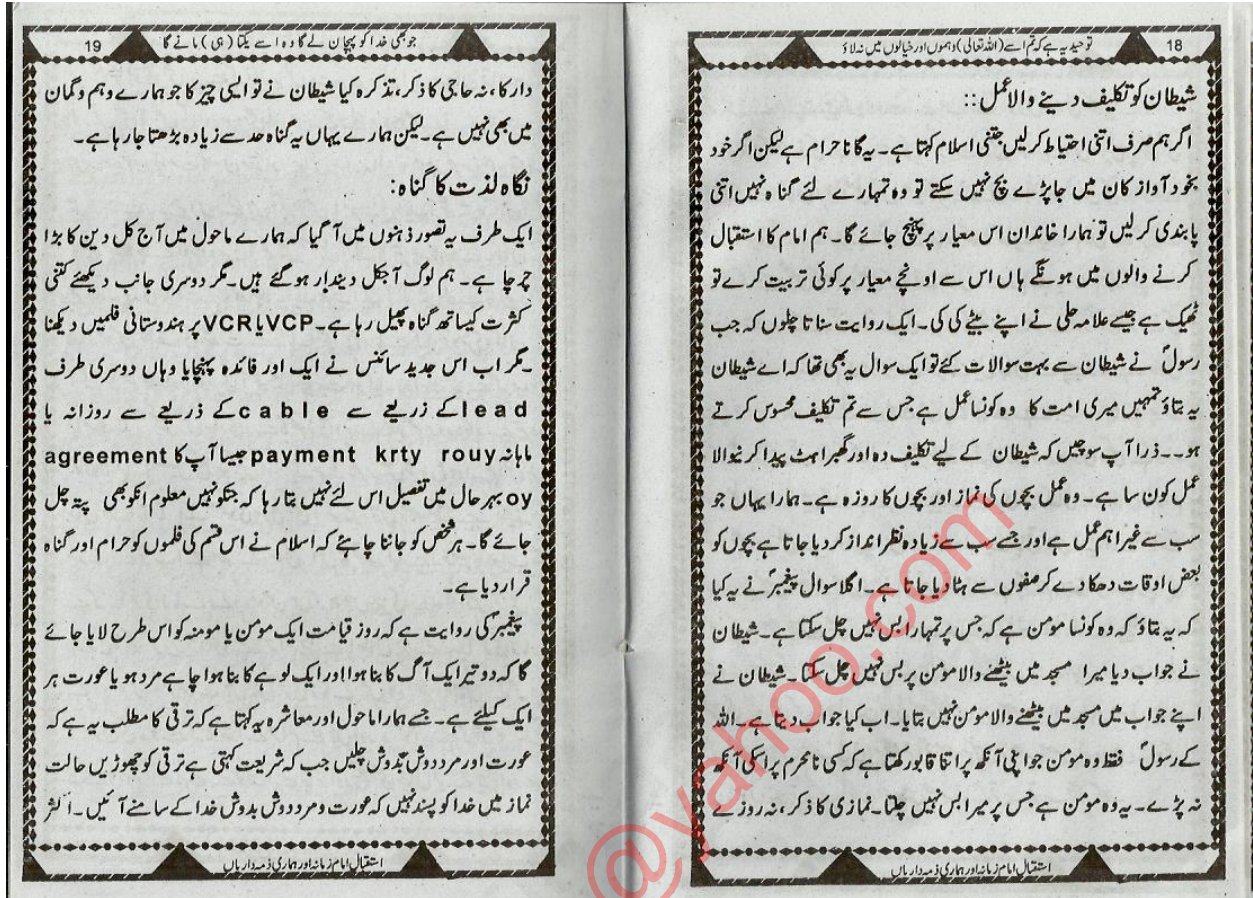 18
توحید یہ ہے کہ تم اسے (اللہ تعالی) وہموں اور خیالوں میں نہ لاؤ
شیطان کو تکلیف دینے والا عمل::
اگر ہم صرف اتنی احتیاط کرلیں جتنی اسلام کہتا ہے۔ یہ گانا حرام ہے لیکن اگر خود
بخود آواز کان میں جاپڑے بچ نہیں سکتے تو وہ تمہارے لئے گناہ نہیں اتنی
پابندی کرلیں تو ہمارا خاندان اس معیار پر پہنچ جائے گا۔ ہم امام کا استقبال
کرنے والوں میں ہونگے ہاں اس سے اونچے معیار پر کوئی تربیت کرے تو
ٹھیک ہے جیسے علامہ حلی نے اپنے بیٹے کی کی۔ ایک روایت سناتا چلوں کہ جب
رسولؐ نے شیطان سے بہت سوالات کئے تو ایک سوال یہ بھی تھا کہ اے شیطان
یہ بتاؤ تمہیں میری امت کا وہ کونسا عمل ہے جس سے تم تکلیف محسوس کرتے
ہو۔۔ذرا آپ سوچیں کہ شیطان کے لیے تکلیف دہ اور گھبراہٹ پیدا کرنیوالا
عمل کون سا ہے۔ وہ عمل بچوں کی نماز اور بچوں کا روزہ ہے۔ ہمارا یہاں جو
سب سے غیر اہم عمل ہے اور جسے سب سے زیادہ نظر انداز کردیا جاتا ہے بچوں کو
بعض اوقات دھکا دے کر صفوں سے ہٹادیا جاتا ہے۔ اگلا سوال پیغمبرؐ نے یہ کیا
کہ یہ بتاؤ کہ وہ کونسا مومن ہے کہ جس پر تمہارا بس نہیں چل سکتا ہے۔ شیطان
نے جواب دیا میرا مسجد میں بیٹھنے والا مومن پر بس نہیں چل سکتا۔ شیطان نے
اپنے جواب میں مسجد میں بیٹھنے والا مومن نہیں بتایا۔ اب کیا جواب دیتا ہے۔ اللہ
کے رسولؐ فقط وہ مومن جو اپنی آنکھ پر اتنا قابو رکھتا ہے کہ کسی نامحرم پر اسکی آنکھ
نہ پڑے۔ یہ وہ مومن ہے جس پر میرا بس نہیں چلتا۔ نمازی کا ذکر، نہ روزے
استقبال امام زمانہ اور ہماری ذمہ داریاں
19
جو بھی خدا کو پہچان لے گا وہ اسے یکتا (ہی) مانے گا
دار کا، نہ حاجی کا ذکر، تذکرہ کیا شیطان نے تو ایسی چیز کا جو ہمارے وہم وگمان
میں بھی نہیں ہے۔ لیکن ہمارے یہاں یہ گناہ حد سے زیادہ بڑھتا جارہا ہے۔
نگاہ لذت کا گناہ:
ایک طرف یہ تصور ذہنوں میں آگیا کہ ہمارے ماحول میں آج کل دین کا بڑا
چرچا ہے۔ ہم لوگ آجکل دیندار ہوگئے ہیں۔ مگر دوسری جانب دیکھئے کتنی
کثرت کیساتھ گناہ پھیل رہا ہے۔ VCP یا VCR پر ہندوستانی فلمیں دیکھنا
۔مگر اب اس جدید سائنس نے ایک اور فائدہ پہنچایا وہاں دوسری طرف
lead کے زریعے سے cable کے ذریعے سے روزانہ یا
ماہانہ payment krty rouy جیسا آپ کا agreement
oy بہر حال میں تفصیل اس لئے نہیں بتا رہا کہ جنکو نہیں معلوم انکو بھی پتہ چل
جائے گا۔ ہر شخص کو جاننا چاہئے کہ اسلام نے اس قسم کی فلموں کو حرام اور گناہ
قرار دیا ہے۔
پیغمبرؐ کی روایت ہے کہ روز قیامت ایک مومن یا مومنہ کو اس طرح لایا جائے
گا کہ دو تیر ایک آگ کا بنا ہوا اور ایک لوہے کا بنا ہوا چاہے مرد ہو یا عورت ہر
ایک کیلئے ہے۔ جسے ہمارا ماحول اور معاشرہ یہ کہتا ہے کہ ترقی کا مطلب یہ ہے کہ
عورت اور مرد دوش بدوش چلیں جب کہ شریعت کہتی ہے ترقی کو چھوڑیں حالت
نماز میں خدا کو پسند نہیں کہ عورت و مرد دوش بدوش خدا کے سامنے آئیں۔ اکثر
استقبال امام زمانہ اور ہماری ذمہ داریاں
@yahoo.com